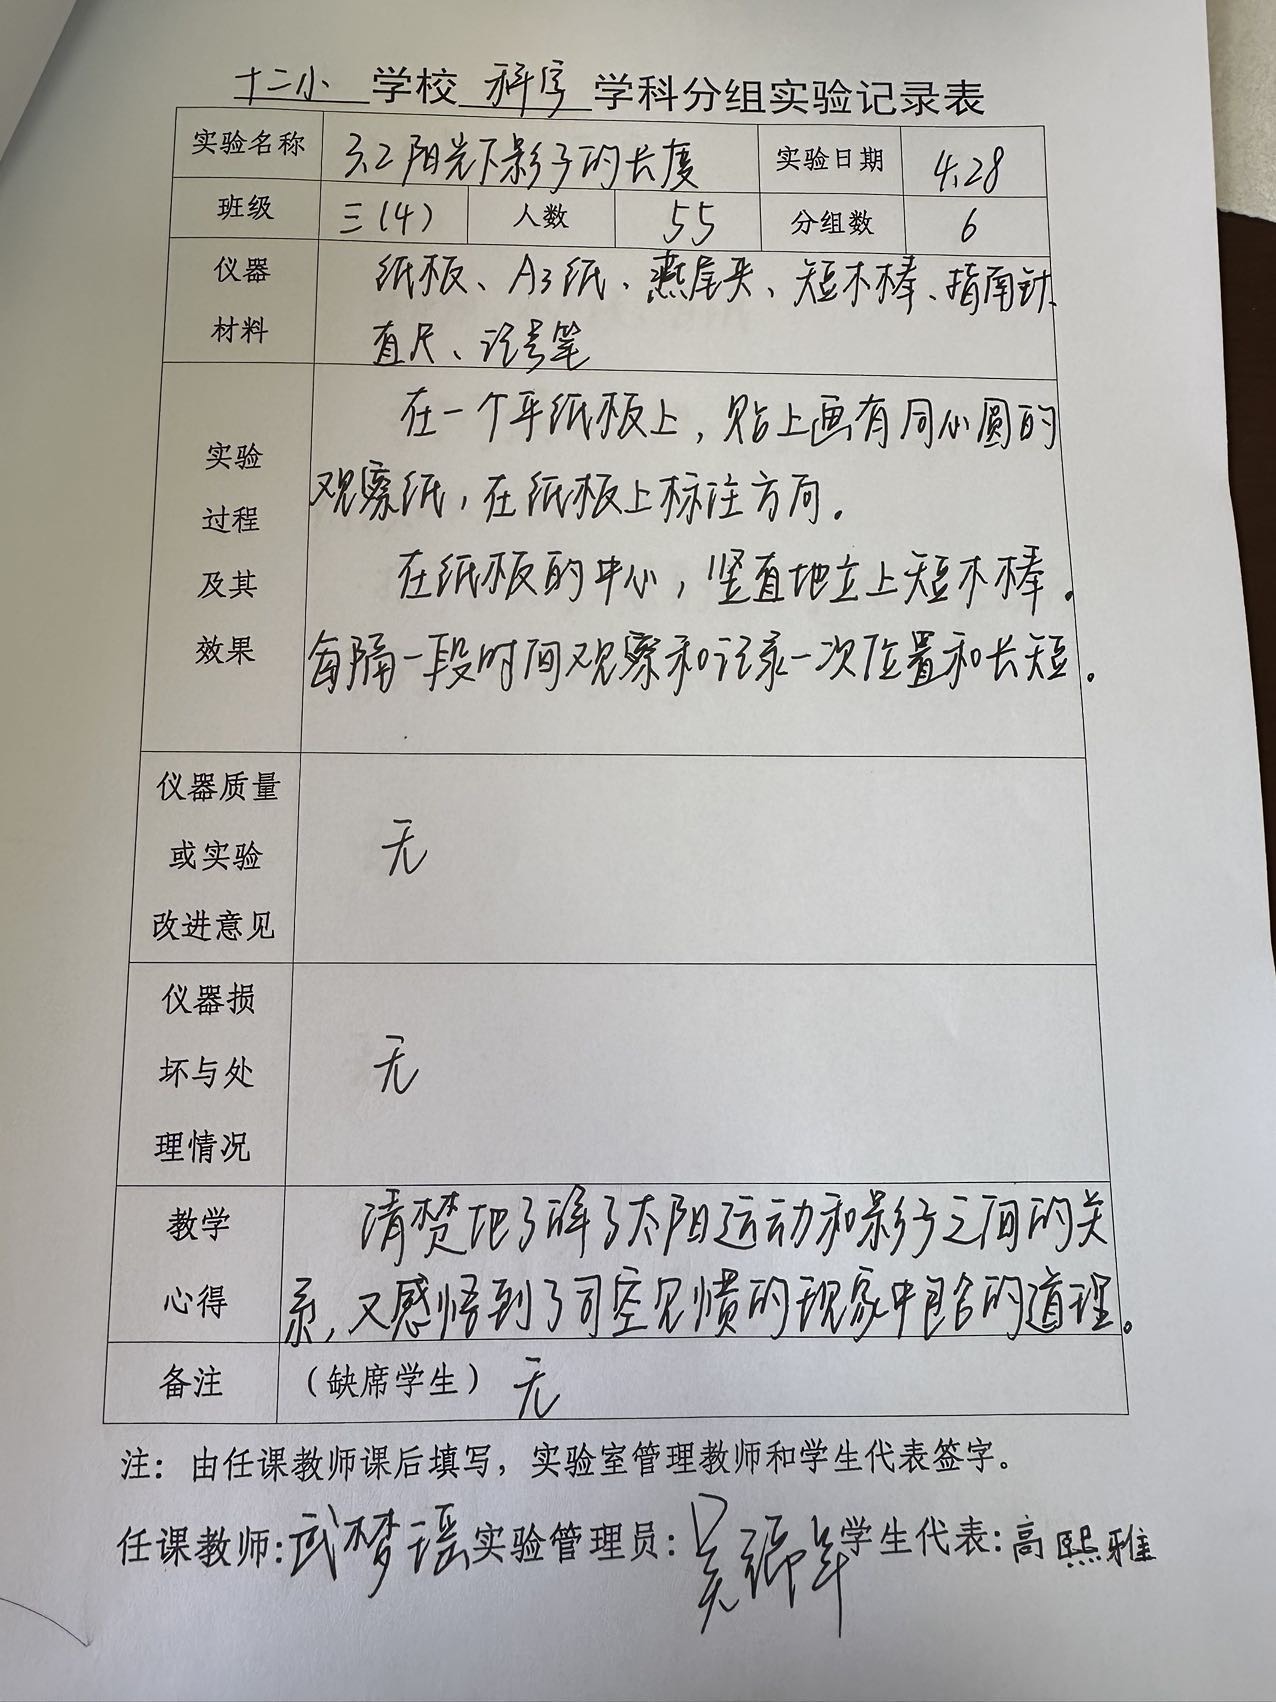 十二小 学校 科学 学科分组实验记录表
实验名称 3.2 阳光下影子的长度 实验日期 4.28
班级 三(4) 人数 55 分组数 6
仪器 纸板、A3纸、燕尾夹、短木棒、指南针、
材料 直尺、记号笔
在一个平纸板上,贴上画有同心圆的
实验 观察纸,在纸板上标注方向。
过程
及其 在纸板的中心,竖直地立上短木棒。
效果 每隔一段时间观察和记录一次位置和长短。
仪器质量
或实验 无
改进意见
仪器损
坏与处 无
理情况
教学 清楚地了解了太阳运动和影子之间的关
心得 系,又感悟到了司空见惯的现象中包含的道理。
备注 (缺席学生) 无
注：由任课教师课后填写，实验室管理教师和学生代表签字。
任课教师:武梦瑶 实验管理员: 学生代表:高熙雅